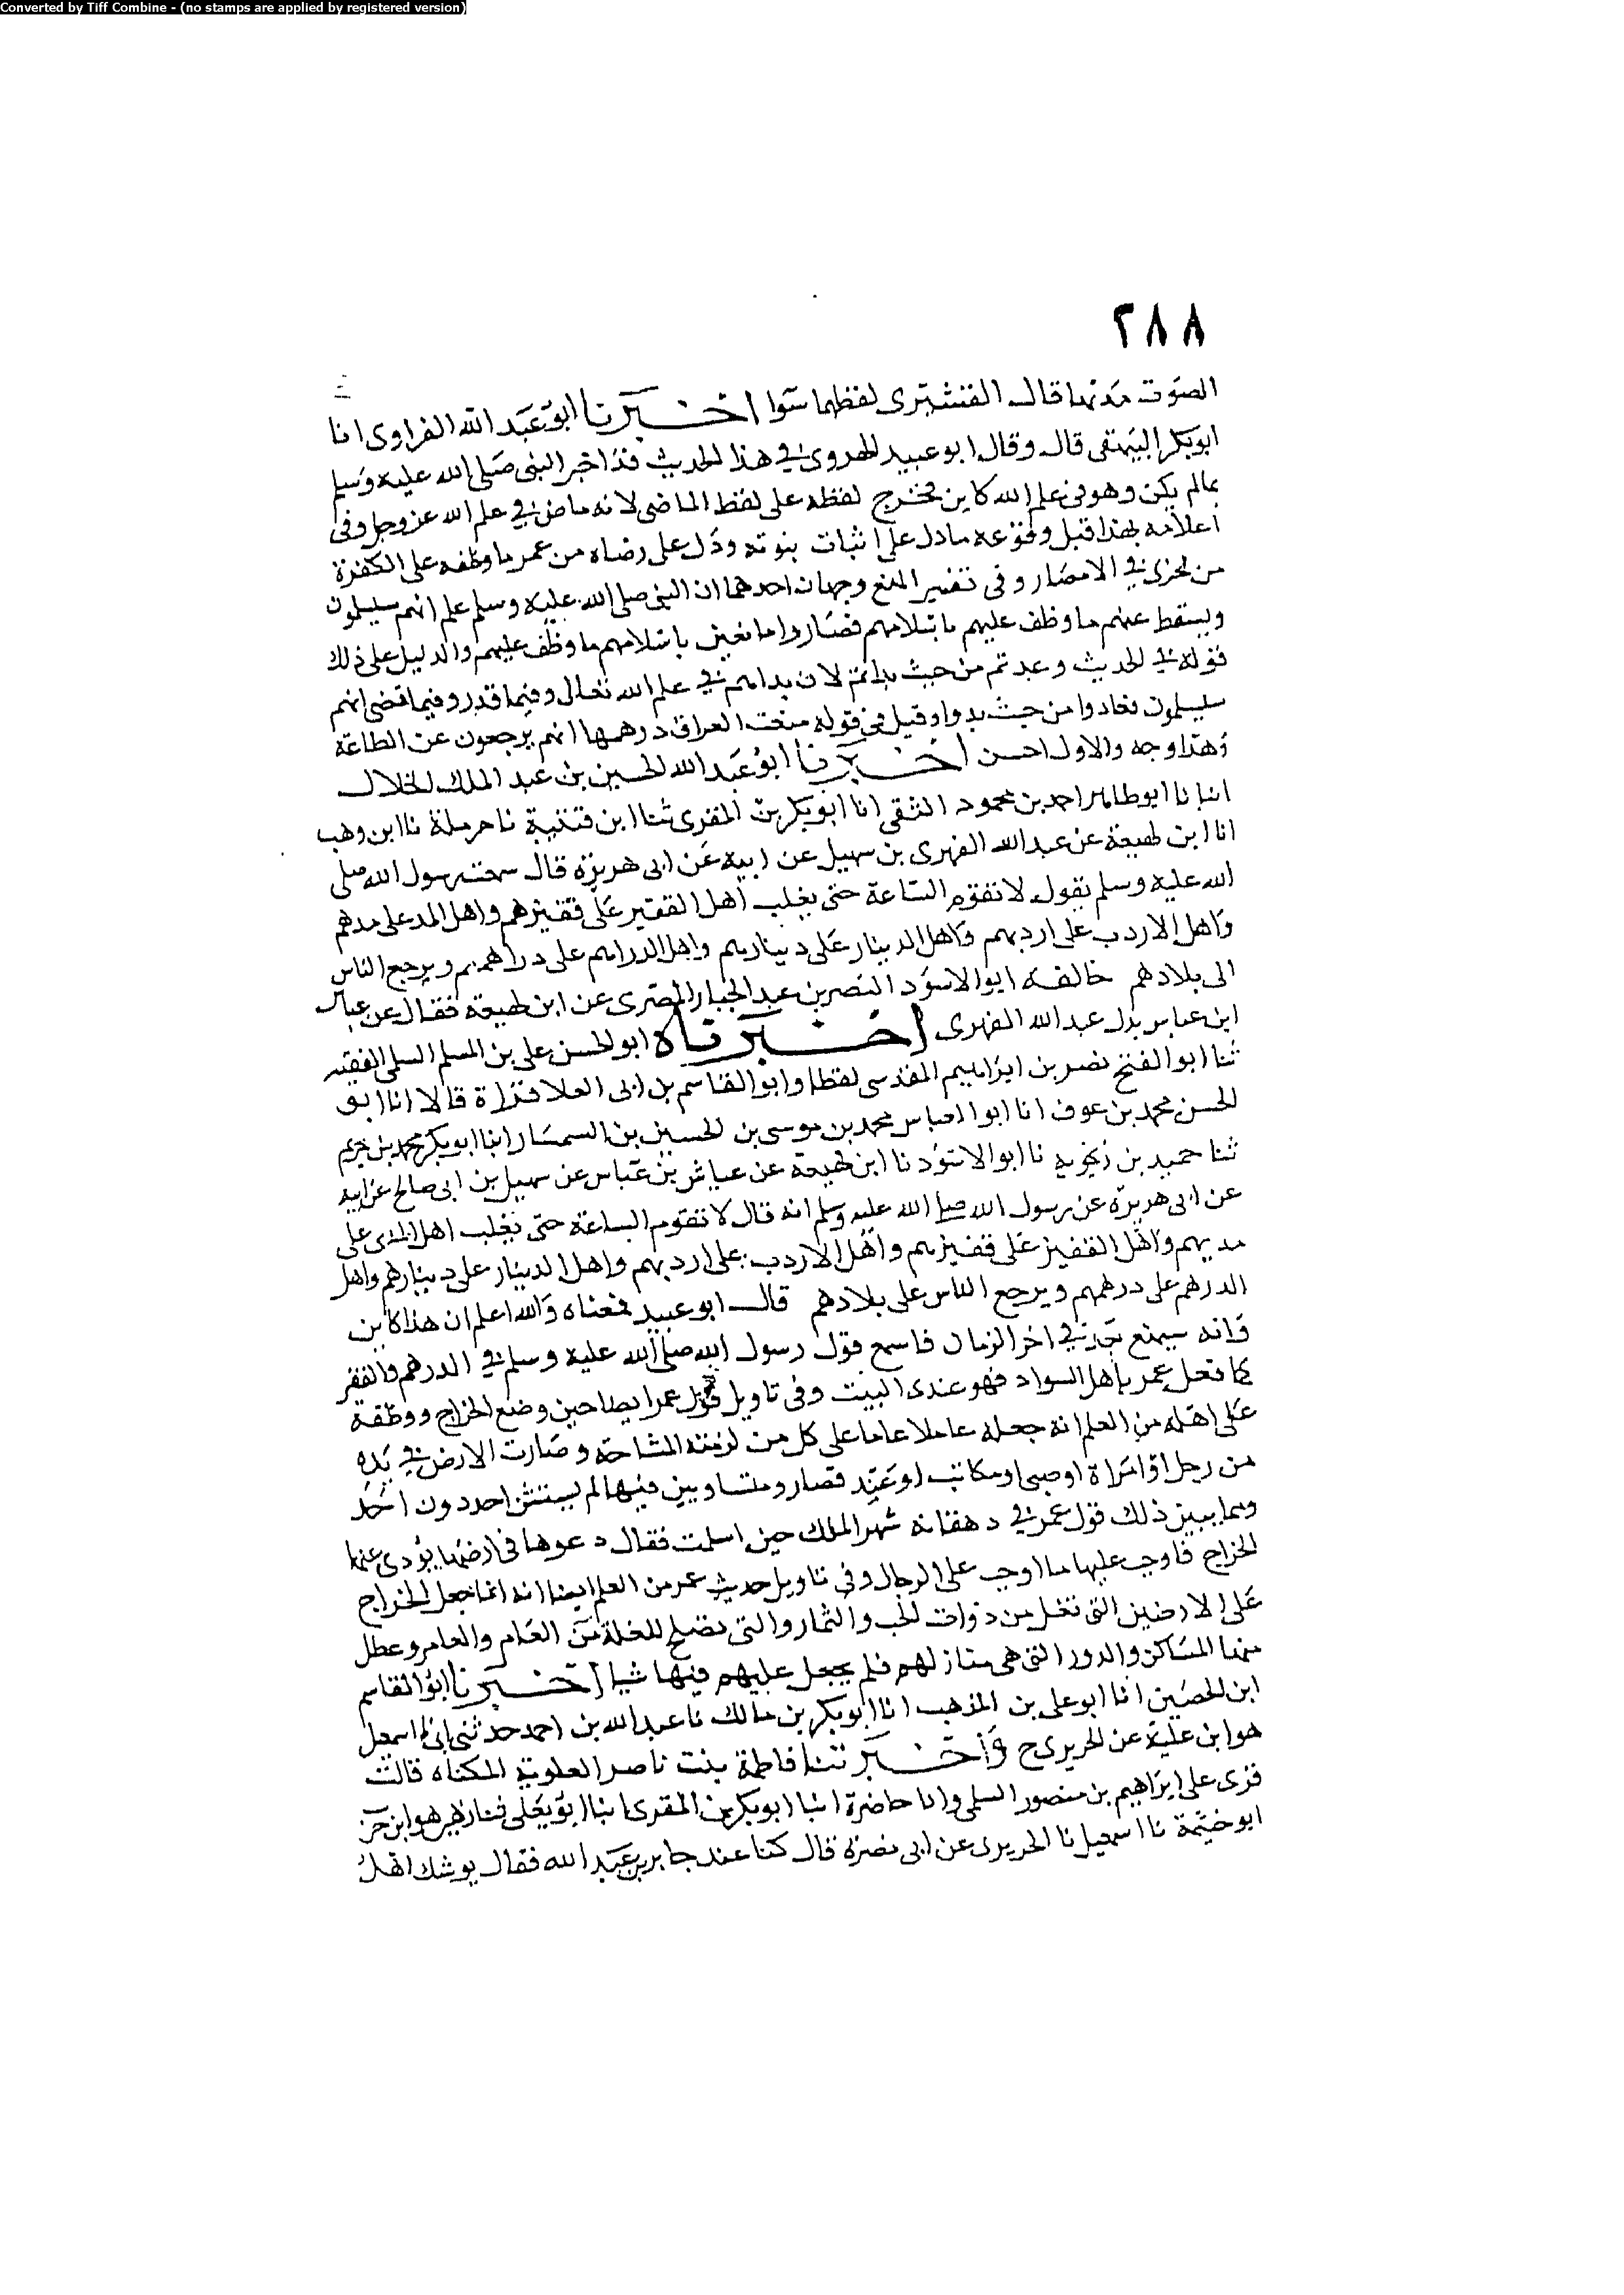 Converted by Tiff Combine - (no stamps are applied by registered version)
٢٨٨
الصوت مدتها قال القشيرى لفظهما سوا اخبرنا ابو عبد الله الفراوى انا
ابو بكر البيهقى قال وقال ابو عبيد الهروى في هذا الحديث قد اخبر النبى صلى الله عليه وسلم
بمالم يكن وهو فى علم الله كاين فخرج لفظه على لفظ الماضى لانه ماض في علم الله عز وجل وفى
اعلامه بهذا قبل وقوعه مادل على اثبات نبوته ودل على رضاه من عمر ما وظفه على الكفرة
من الجزى في الامصار وفى تفسير المنع وجهان احدهما ان النبى صلى الله عليه وسلم علم انهم سيسلمون
ويسقط عنهم ما وظف عليهم باسلامهم فصاروا مانعين باسلامهم ما وظف عليهم والدليل على ذلك
قوله في الحديث وعدتم من حيث بداتم لان بداهم في علم الله تعالى وفيما قدر وفيما قضى انهم
سيسلمون فعادوا من حيث بدوا وقيل فى قوله منعت العراق درهمها انهم يرجعون عن الطاعة
وهذا وجه والاول احسن اخبرنا ابو عبد الله الحسين بن عبد الملك الخلال
انبانا ابو طاهر احمد بن محمود الثقفى انا ابو بكر بن المقرى ثنا ابن قتيبة نا حرملة نا ابن وهب
انا ابن لهيعة عن عبد الله الفهرى بن سهيل عن ابيه عن ابى هريرة قال سمعت رسول الله صلى
الله عليه وسلم يقول لا تقوم الساعة حتى يغلب اهل القفيز على قفيزهم واهل المد على مدهم
واهل الاردب على اردبهم واهل الدينار على دينارهم واهل الدراهم على دراهمهم ويرجع الناس
الى بلادهم خالفه ابو الاسود النضر بن عبد الجبار المصرى عن ابن لهيعة فقال عن عباس
ابن عباس بدل عبد الله الفهرى اخبرناه ابو الحسن على بن المسلم السلمى الفقيه
ثنا ابو الفتح نصر بن ابراهيم المقدسى لفظا وابو القاسم بن ابى العلا قراة قالا انا ابو
الحسن محمد بن عوف انا ابو العباس محمد بن موسى بن الحسين بن السمسار انبا ابو بكر محمد بن خريم
ثنا حميد بن زنجويه نا ابو الاسود نا ابن لهيعة عن عياش بن عباس عن سهيل بن ابى صالح عن ابيه
عن ابى هريرة عن رسول الله صلى الله عليه وسلم انه قال لا تقوم الساعة حتى يغلب اهل المدى على
مديهم واهل القفيز على قفيزهم واهل الاردب على اردبهم واهل الدينار على دينارهم واهل
الدرهم على درهمهم ويرجع الناس على بلادهم قال ابو عبيد فمعناه والله اعلم ان هذا كاين
وانه سيمنع في اخر الزمان فاسمع قول رسول الله صلى الله عليه وسلم في الدرهم والقفيز
كما فعل عمر باهل السواد فهو عندى الثبت وفى تاويل قول عمر ايضا حين وضع الخراج ووظفه
على اهله من العلم انه جعله عاملا عاما على كل من لزمته المساحة وصارت الارض في يده
من رجل او امراة او صبى او مكاتب او عبد فصاروا متساويين فيها لم يستثن احد دون احد
ومما يبين ذلك قول عمر في دهقانة نهر الملك حين اسلمت فقال دعوها فى ارضها يؤدى عنها
الخراج فاوجب عليها ما اوجب على الرجال وفى تاويل حديث عمر من العلم ايضا انه انما جعل الخراج
على الارضين التى تغل من ذوات الحب والثمار والتى تصلح للغلة من العامر والعامر وعطل
منها المساكن والدور التى هى منازلهم فلم يجعل عليهم فيها شيا اخبرنا ابو القاسم
ابن الحصين انا ابو على بن المذهب انا ابو بكر بن مالك نا عبد الله بن احمد حدثنى ابى نا اسمعيل
هو ابن علية عن الجريرى ح واخبرتنا فاطمة بنت ناصر العلوية المكناه قالت
قرى على ابراهيم بن منصور السلمى وانا حاضرة انبا ابو بكر بن المقرى انبا ابو يعلى ثنا زهير هو ابن حرب
ابو خيثمة نا اسمعيل نا الجريرى عن ابى نضرة قال كنا عند جابر بن عبد الله فقال يوشك اهل